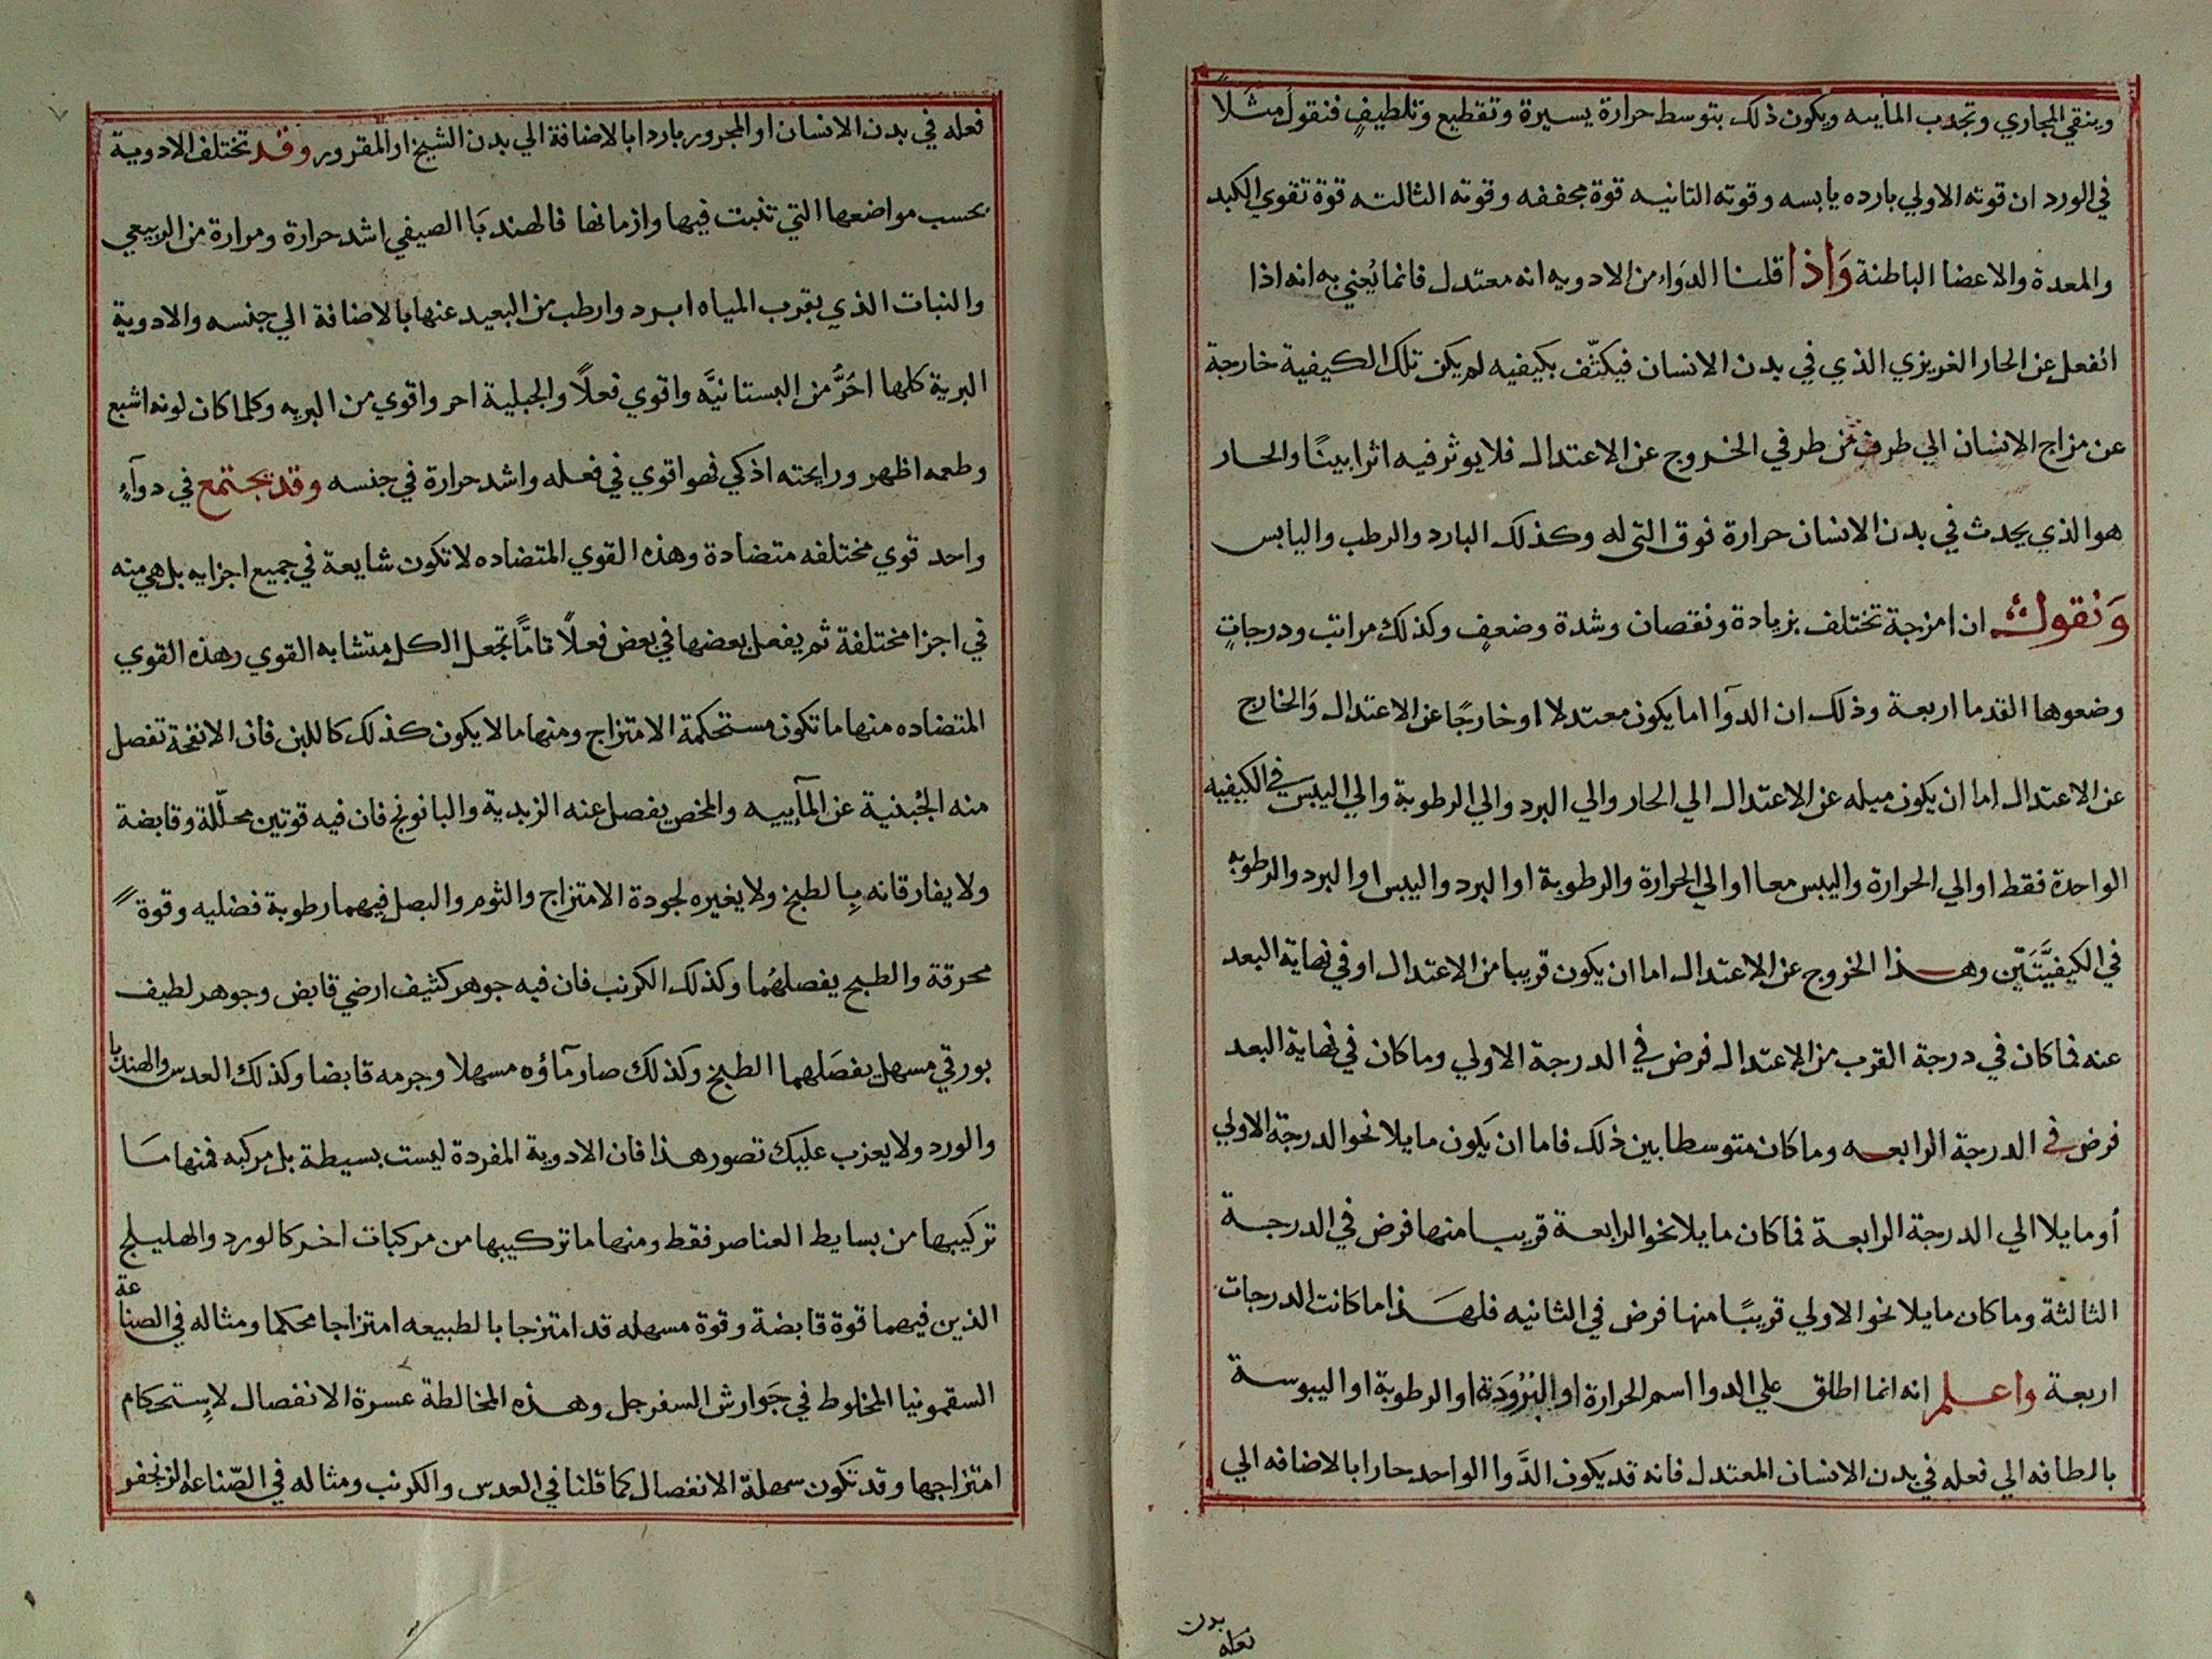 وينقي المجاري وتجدب المأييه ويكون ذلك بتوسط حرارة يسيرة وتقطيع وتلطيفٍ فنقول مثلاً
في الورد ان قوته الاولي بارده يابسه وقوته الثانيه قوة مجففه وقوته الثالثه قوة تقوي الكبد
والمعدة والاعضا الباطنة وَاذا قلنا الدوَاء من الادويه انه معتدل فانما يُعني به انه اذا
انفعل عن الحار الغريزي الذي في بدن الانسان فيكتّف بكيفيه لم يكن تلك الكيفية خارجة
عن مزاج الانسان الي طرف من طرفي الخروج عن الاعتدال فلا يوثر فيه اثرا بينًا والحار
هوالذي يحدث في بدن الانسان حرارة فوق التى له وكذلك البارد والرطب واليابس
وَنقول ان امزجة تختلف بزيادة ونقصان وشدة وضعفٍ وكذلك مراتب ودرجاتٍ
وضعوها القدما اربعة وذلك ان الدوآ اما يكون معتدلا او خارجًا عن الاعتدال وَالخارج
عن الاعتدال اما ان يكون ميله عن الاعتدال الي الحار والي البرد والي الرطوبة والي اليبس في الكيفيه
الواحدة فقط او الي الحرارة واليبس معا او الي الحرارة والرطوبة او البرد واليبس او البرد والرطوبه
في الكيفيَّتَيْن وهذا الخروج عن الاعتدال اما ان يكون قريبا من الاعتدال او في نهاية البعد
عنه فما كان في درجة القرب من الاعتدال فرض في الدرجة الاولي وما كان في نهاية البعد
فرض في الدرجة الرابعه وما كان متوسطا بين ذلك فاما ان يكون مايلا نحو الدرجة الاولي
أو مايلا الي الدرجة الرابعة فما كان مايلا نحو الرابعة قريبا منها فرض في الدرجة
الثالثة وما كان مايلا نحو الاولي قريبًا منها فرض في الثانيه فلهذا ما كانت الدرجات
اربعة واعلم انه انما اطلق علي الدوا اسم الحرارة او البُرُودَة او الرطوبة او اليبوسة
بالطافه الي فعله في بدن الانسان المعتدل فانه قد يكون الدَّوا الواحد حارا بالاضافه الي
بدن
فعله
فعله في بدن الانسان او المحرور باردا بالاضافة الي بدن الشيخ او المقرور وقد تختلف الادوية
بحسب مواضعها التي تنبت فيها وازمانها فالهندبَا الصيفي اشد حرارة ومرارة من الربيعي
والنبات الذي بقرب المياه ابرد وارطب من البعيد عنها بالاضافة الي جنسه والادوية
البرية كلها احَرُّ من البستانيَّه واقوي فعلاً والجبلية احر واقوي من البريه وكلما كان لونه اشبع
وطعمه اظهر ورايحته اذكي فهو اقوي في فعله واشد حرارة في جنسه وقد يجتمع في دوآءٍ
واحد قوي مختلفه متضادة وهذه القوي المتضاده لا تكون شايعة في جميع اجزايه بل هي منه
في اجزا مختلفة ثم يفعل بعضها في بعض فعلاً تامًّا تجعل الكل متشابه القوي وهذه القوي
المتضاده منها ما تكون مستحكمة الامتزاج ومنها ما لا يكون كذلك كاللبن فان الانفحة تفصل
منه الجُبنية عن المآييه والمخض يفصل عنه الزبدية والبانونج فان فيه قوتين محلّلة وقابضة
ولا يفارقانه بِالطبخ ولا يغيره لجودة الامتزاج والثوم والبصل فيهما رطوبة فضليه وقوةً
محرقة والطبح يفصلهُما وكذلك الكرنب فان فيه جوهر كثيف ارضي قابض وجوهر لطيف
بورقي مسهل يفصَلهما الطبخ وكذلك صار مآؤه مسهلا وجرمه قابضا وكذلك العدس والهندبا
والورد ولا يعزب عليك تصور هذا فان الادوية المفردة ليست بسيطة بل مركبه فمنها مَا
تركيبها من بسايط العناصر فقط ومنها ما تركيبها من مركبات اخر كالورد والهليلج
الذين فيهما قوة قابضة وقوة مسهله قد امتزجا بالطبيعه امتزاجا محكما ومثاله في الصناعة
السقمونيا المخلوط في جَوارش السفرجل وهذه المخالطة عسرة الانفصال لاِستحكام
امتزاجها وقد تكون سهلة الانفصال كما قلنا في العدس والكرنب ومثاله في الصّناعه الزنجفر